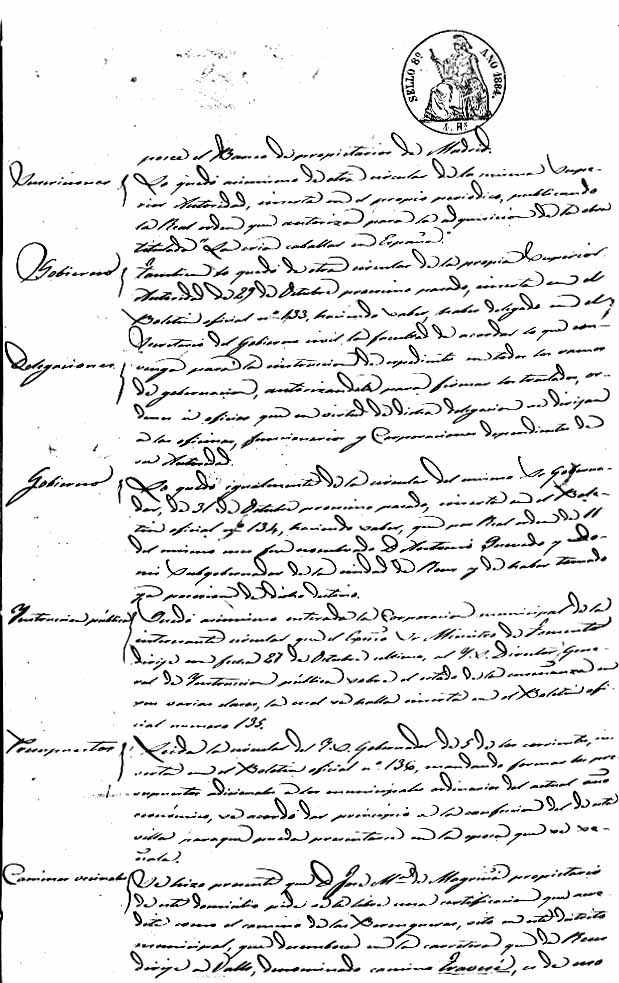 SELLO 8º AÑO 1884.
4. Rs
posee el Banco de propietarios de Madrid.
Suscriciones
Lo quedó asimismo de otra circular de la misma Supe-
rior Autoridad, inserta en el propio periodico, publicando
la Real orden que autoriza para la adquisicion de la obra
titulada "La cria caballar en España."
Gobierno
Tambien lo quedó de otra circular de la propia Superior
Autoridad de 29 de Octubre proximo pasado, inserta en el
Boletin oficial nº 133, haciendo saber, haber delegado en el
Secretario del Gobierno civil la facultad de acordar lo que con-
Delegaciones
venga para la instruccion de expedientes en todos los ramos
de gobernacion, autorizandole para firmar los traslados, or-
denes ú oficios que en virtud de dicha delegacion se dirijan
a las oficinas, funcionarios y Corporaciones dependientes de
su Autoridad.
Gobierno
Lo quedó igualmente de la circular del mismo Sr Goberna-
dor, de 31 de Octubre proximo pasado, inserta en el Bole-
tin oficial nº 134, haciendo saber, que por Real orden de 11
del mismo mes fue nombrado D. Antonio Quevedo y Do-
nis Subgobernador de la ciudad de Reus y de haber tomado
ya posesion de dicho destino.
Instruccion pública
Quedó asimismo enterada la Corporacion municipal de la
interesante circular que el Excmo Sr Ministro de Fomento
dirije con fecha 27 de Octubre ultimo, al Y. S. Director Gene-
ral de Instruccion pública sobre el estado de la enseñanza en
sus varias clases, la cual se halla inserta en el Boletin ofi-
cial numero 135.
Presupuestos
Leida la circular del Y. S. Gobernador de 5 de los corrientes, in-
serta en el Boletin oficial nº 136, mandando formar los pre-
supuestos adicionales a los municipales ordinarios del actual año
económico, se acordó dar principio a la confeccion del de esta
villa para que pueda presentarse en la época que se se-
ñala.
Caminos vecinales
Se hizo presente que D. José Mª de Magriñá propietario
de este domicilio pide se le libre una certificacion que acre-
dite como el camino de las Berengueras, sito en este distrito
municipal, que desemboca en la carretera que de Reus
dirije a Valls, denominado camino Travesé, es de uso